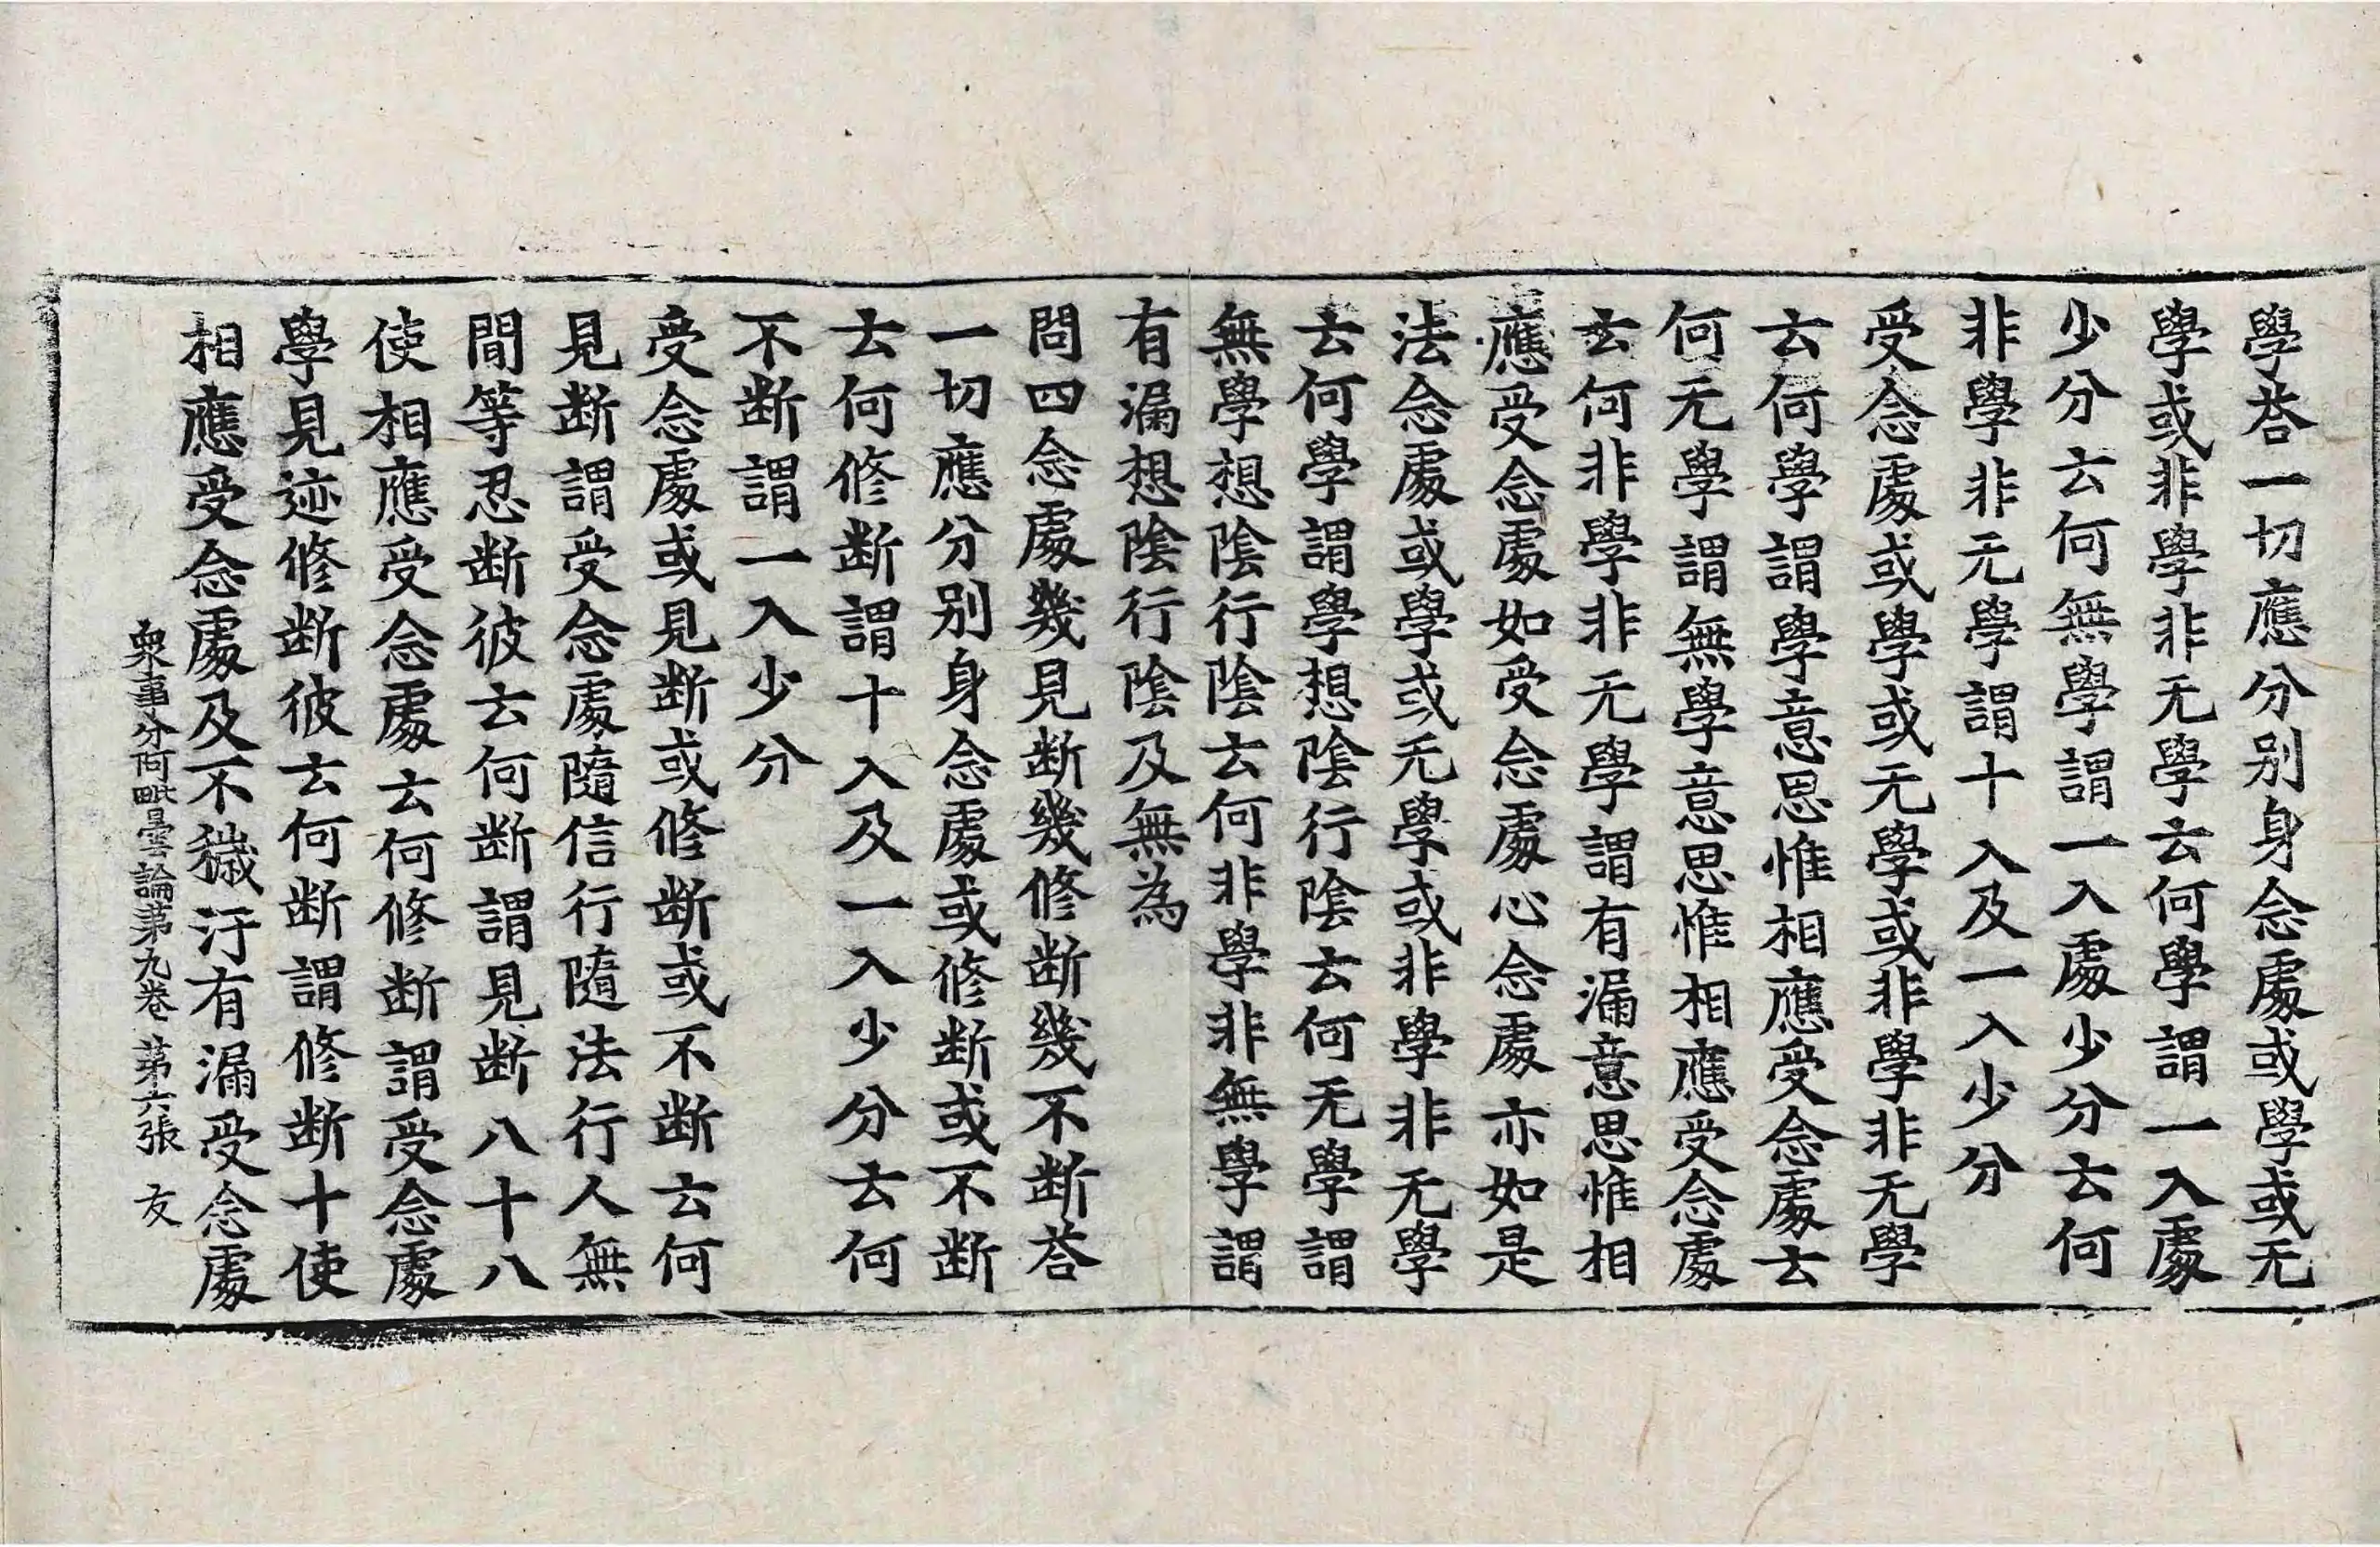 學荅一切應分別身念處或學或无
學或非學非无學云何學謂一入處
少分云何無學謂一入處少分云何
非學非无學謂十入及一入少分
受念處或學或无學或非學非无學
云何學謂學意思惟相應受念處云
何无學謂無學意思惟相應受念處
云何非學非无學謂有漏意思惟相
應受念處如受念處心念處亦如是
法念處或學或无學或非學非无學
云何學謂學想陰行陰云何无學謂
無學想陰行陰云何非學非無學謂
有漏想陰行陰及無為
問四念處幾見断幾修断幾不断荅
一切應分別身念處或修断或不断
云何修断謂十入及一入少分云何
不断謂一入少分
受念處或見断或修断或不断云何
見断謂受念處隨信行隨法行人無
間等忍断彼云何断謂見断八十八
使相應受念處云何修断謂受念處
學見迹修断彼云何断謂修断十使
相應受念處及不穢汙有漏受念處
衆事分阿毗曇論第九卷 第六張 友